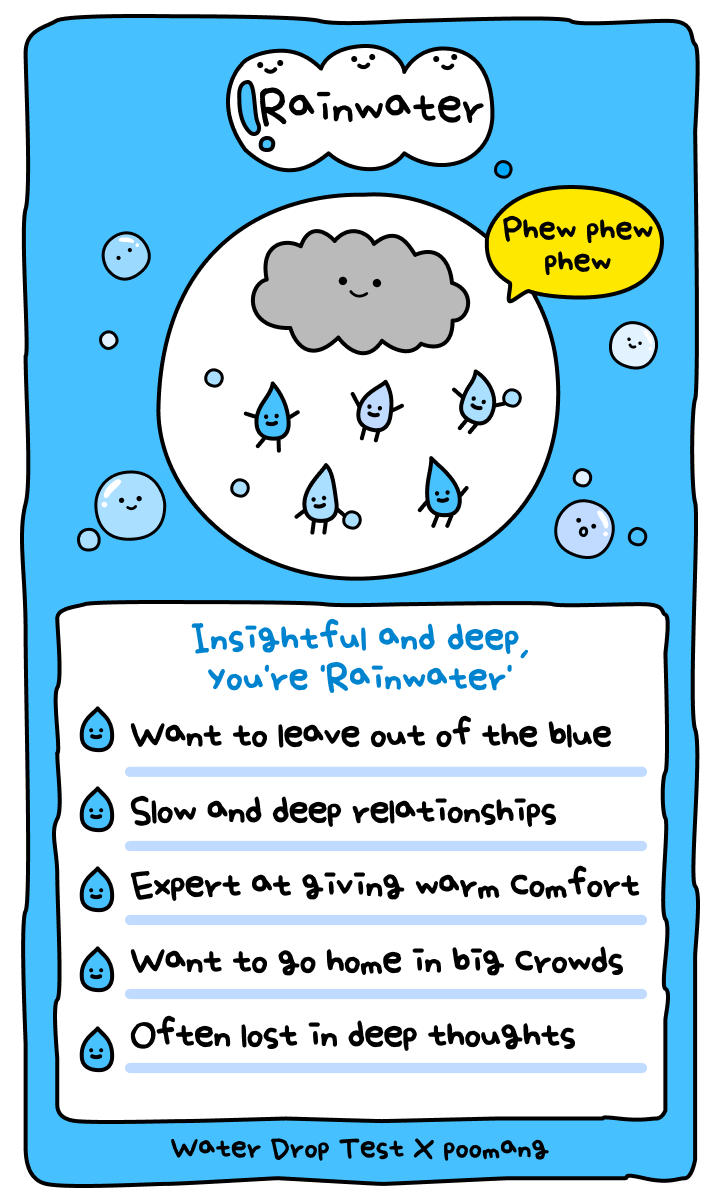 Rainwater
Phew phew
phew
Insightful and deep,
you're 'Rainwater'
Want to leave out of the blue
Slow and deep relationships
Expert at giving warm comfort
Want to go home in big crowds
Often lost in deep thoughts
Water Drop Test X poomang